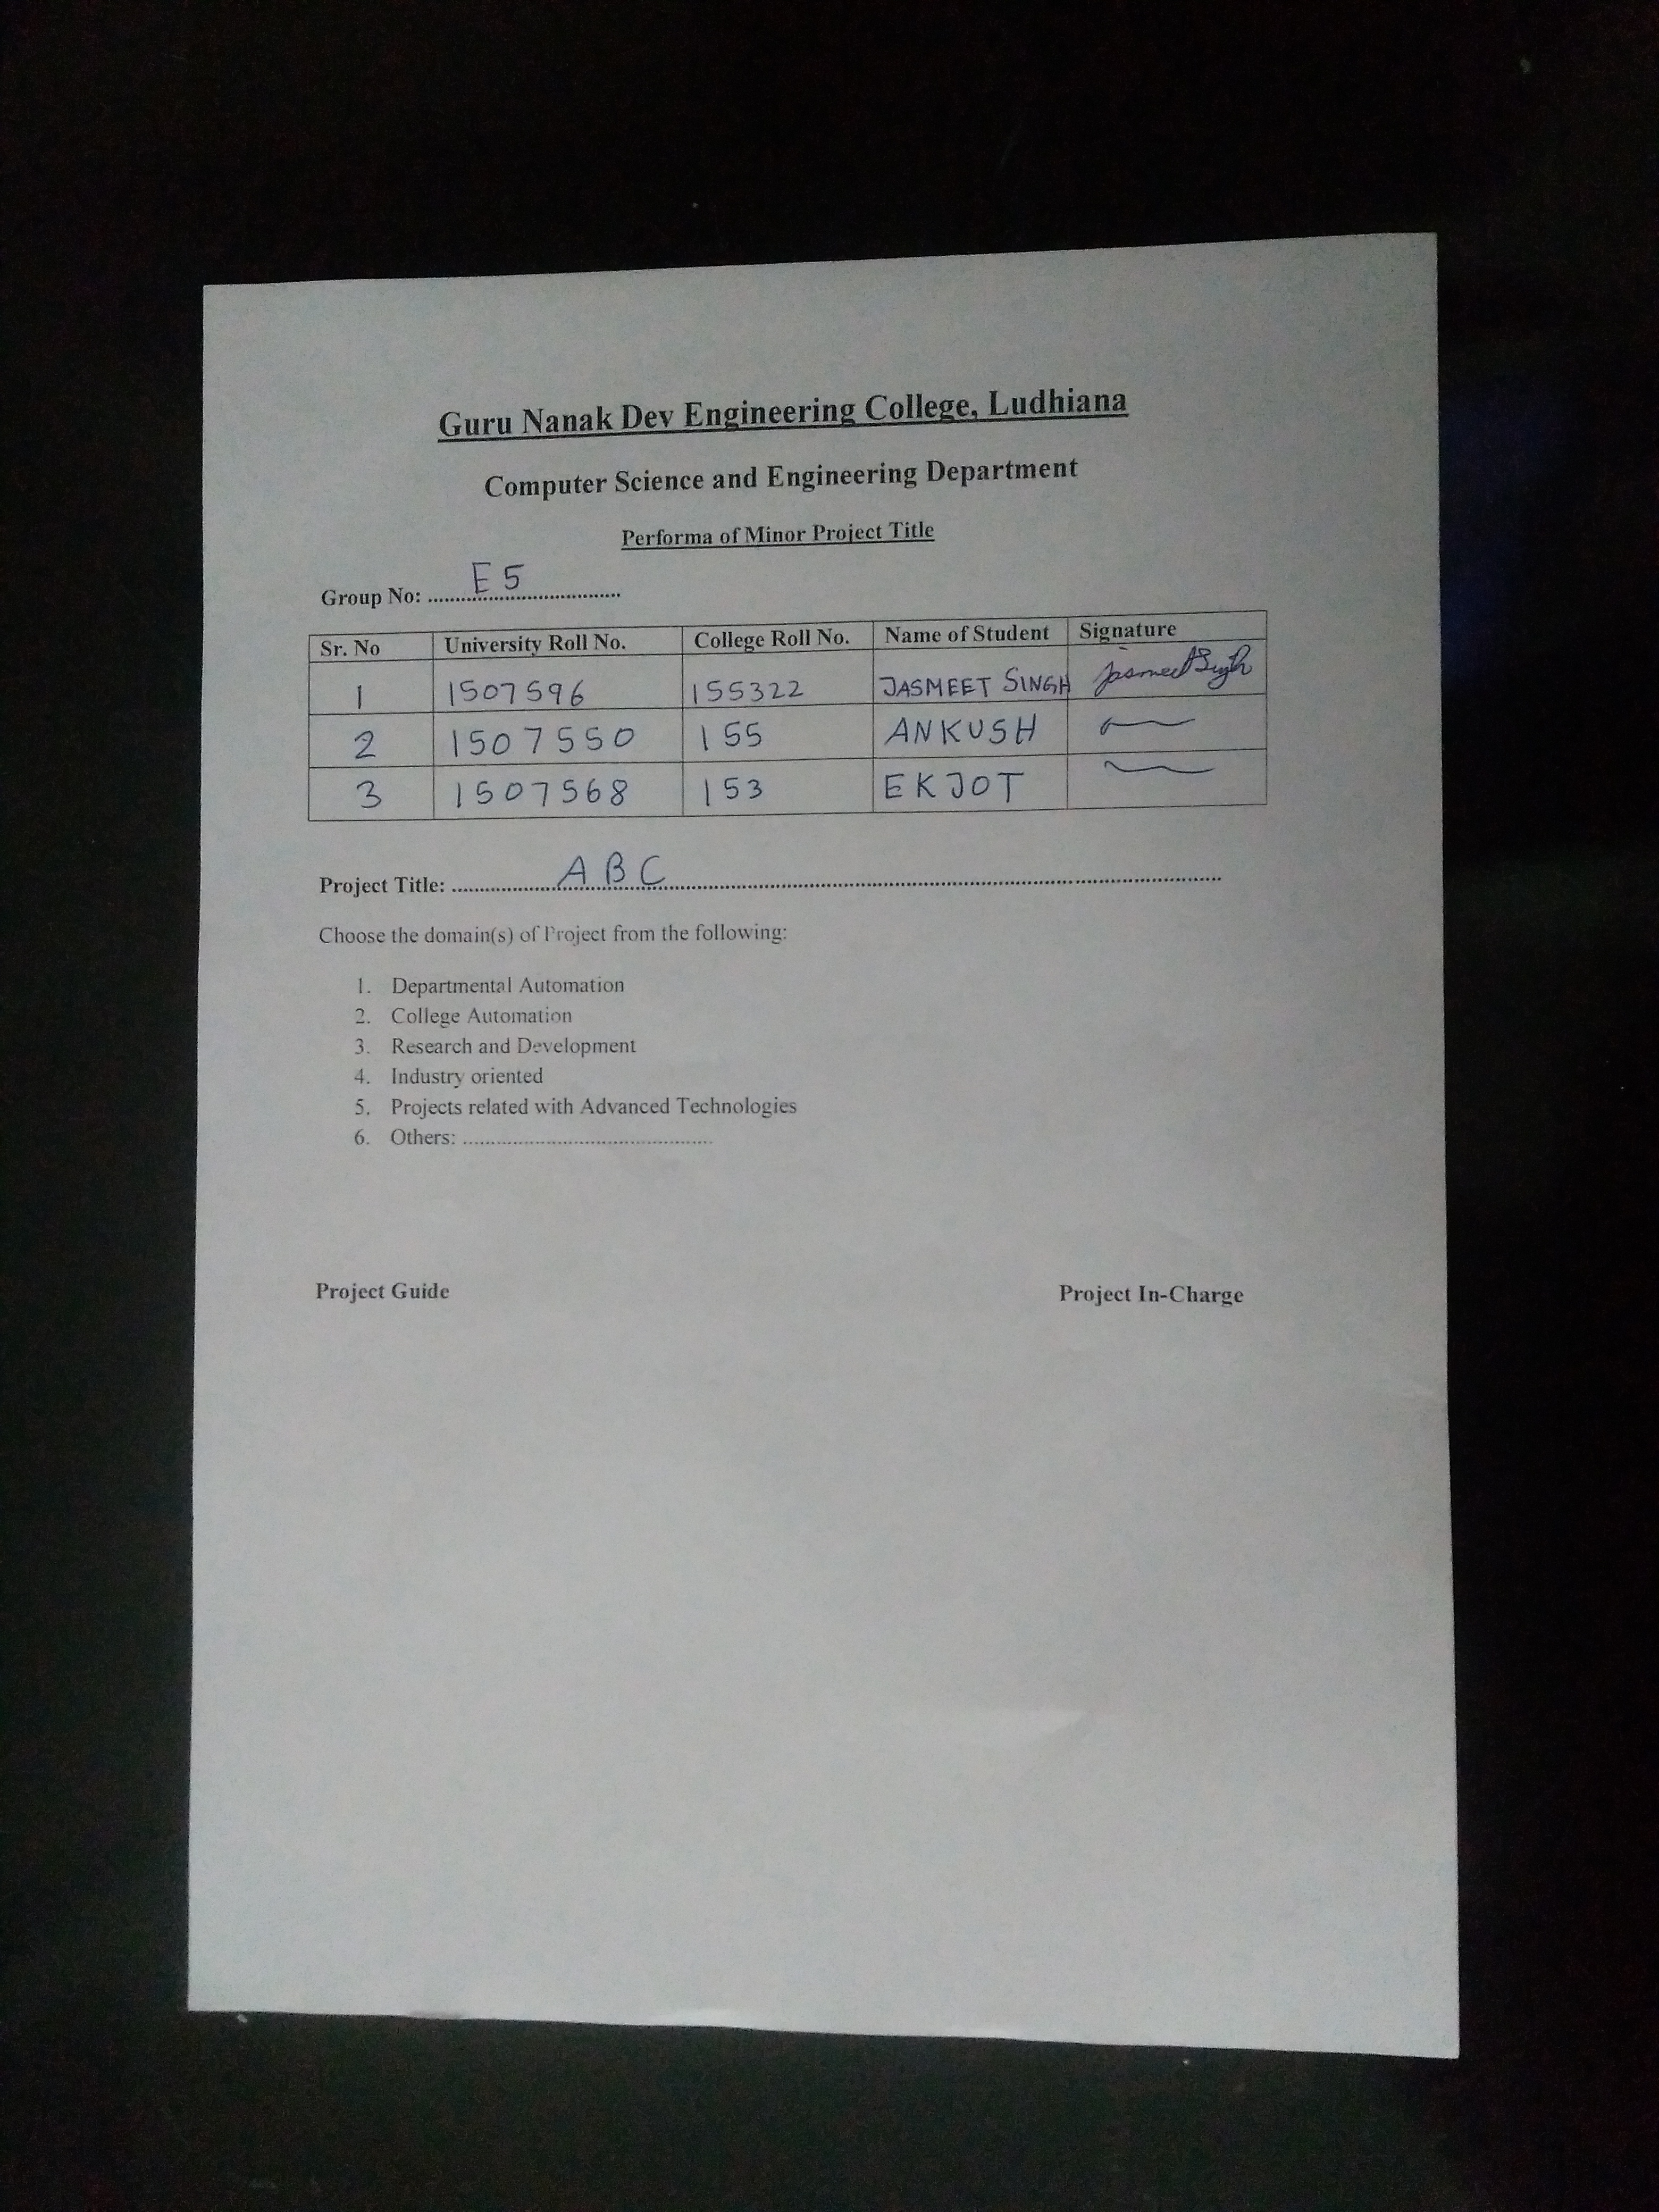 Guru Nanak Dev Engineering College, Ludhiana
Computer Science and Engineering Department
Performa of Minor Project Title
Group No: .................................... E5
Sr. No University Roll No. College Roll No. Name of Student Signature
1 1507596 155322 JASMEET SINGH Jasmeet Singh
2 1507550 155 ANKUSH
3 1507568 153 EKJOT
Project Title: .................... A B C ....................
Choose the domain(s) of Project from the following:
1. Departmental Automation
2. College Automation
3. Research and Development
4. Industry oriented
5. Projects related with Advanced Technologies
6. Others: ................................................
Project Guide Project In-Charge